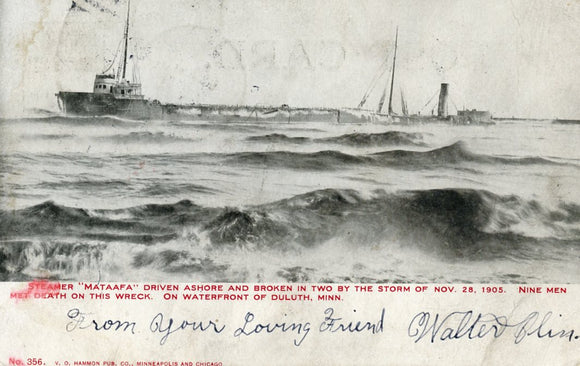 STEAMER "MATAAFA" DRIVEN ASHORE AND BROKEN IN TWO BY THE STORM OF NOV. 28, 1905. NINE MEN
MET DEATH ON THIS WRECK. ON WATERFRONT OF DULUTH, MINN.
From Your Loving Friend Walter Olin.
No. 356. V. O. HAMMON PUB. CO., MINNEAPOLIS AND CHICAGO